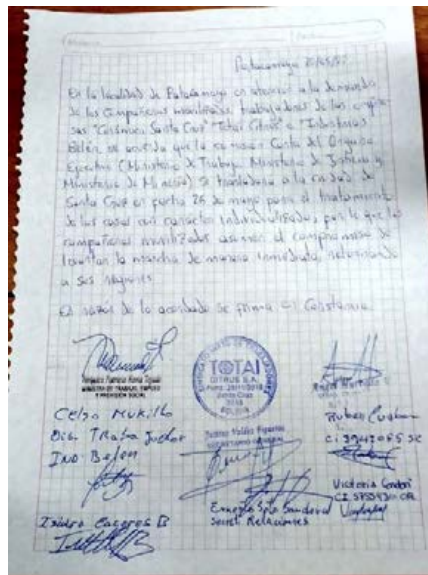 Patacamaya 25/05/
En la localidad de Patacamaya en atención a la demanda
de los compañeros movilizados, trabajadores de las empre-
sas "Cerámica Santa Cruz" "Totai Citrus" e "Industrias
Belén, se acuerda que la comisión Corta del Organo
Ejecutivo (Ministerio de Trabajo, Ministerio de Justicia y
Ministerio de Minería) se trasladara a la ciudad de
Santa Cruz en fecha 26 de mayo para el tratamiento
de los casos con caracter Individualizado, por lo que los
compañeros movilizados asumen el compromiso de
levantar la marcha de manera inmediata, retornando
a sus regiones
En razón de lo acordado se firma en Constancia.
MINISTRA DE TRABAJO, EMPLEO
Y PREVISIÓN SOCIAL
TOTAI
CITRUS S.A.
Santa Cruz
BOLIVIA
Celso Murillo
Ruben
IND Belen
Victoria
Isidro Caceres B
Ernesto Soto Sandoval
Relaciones